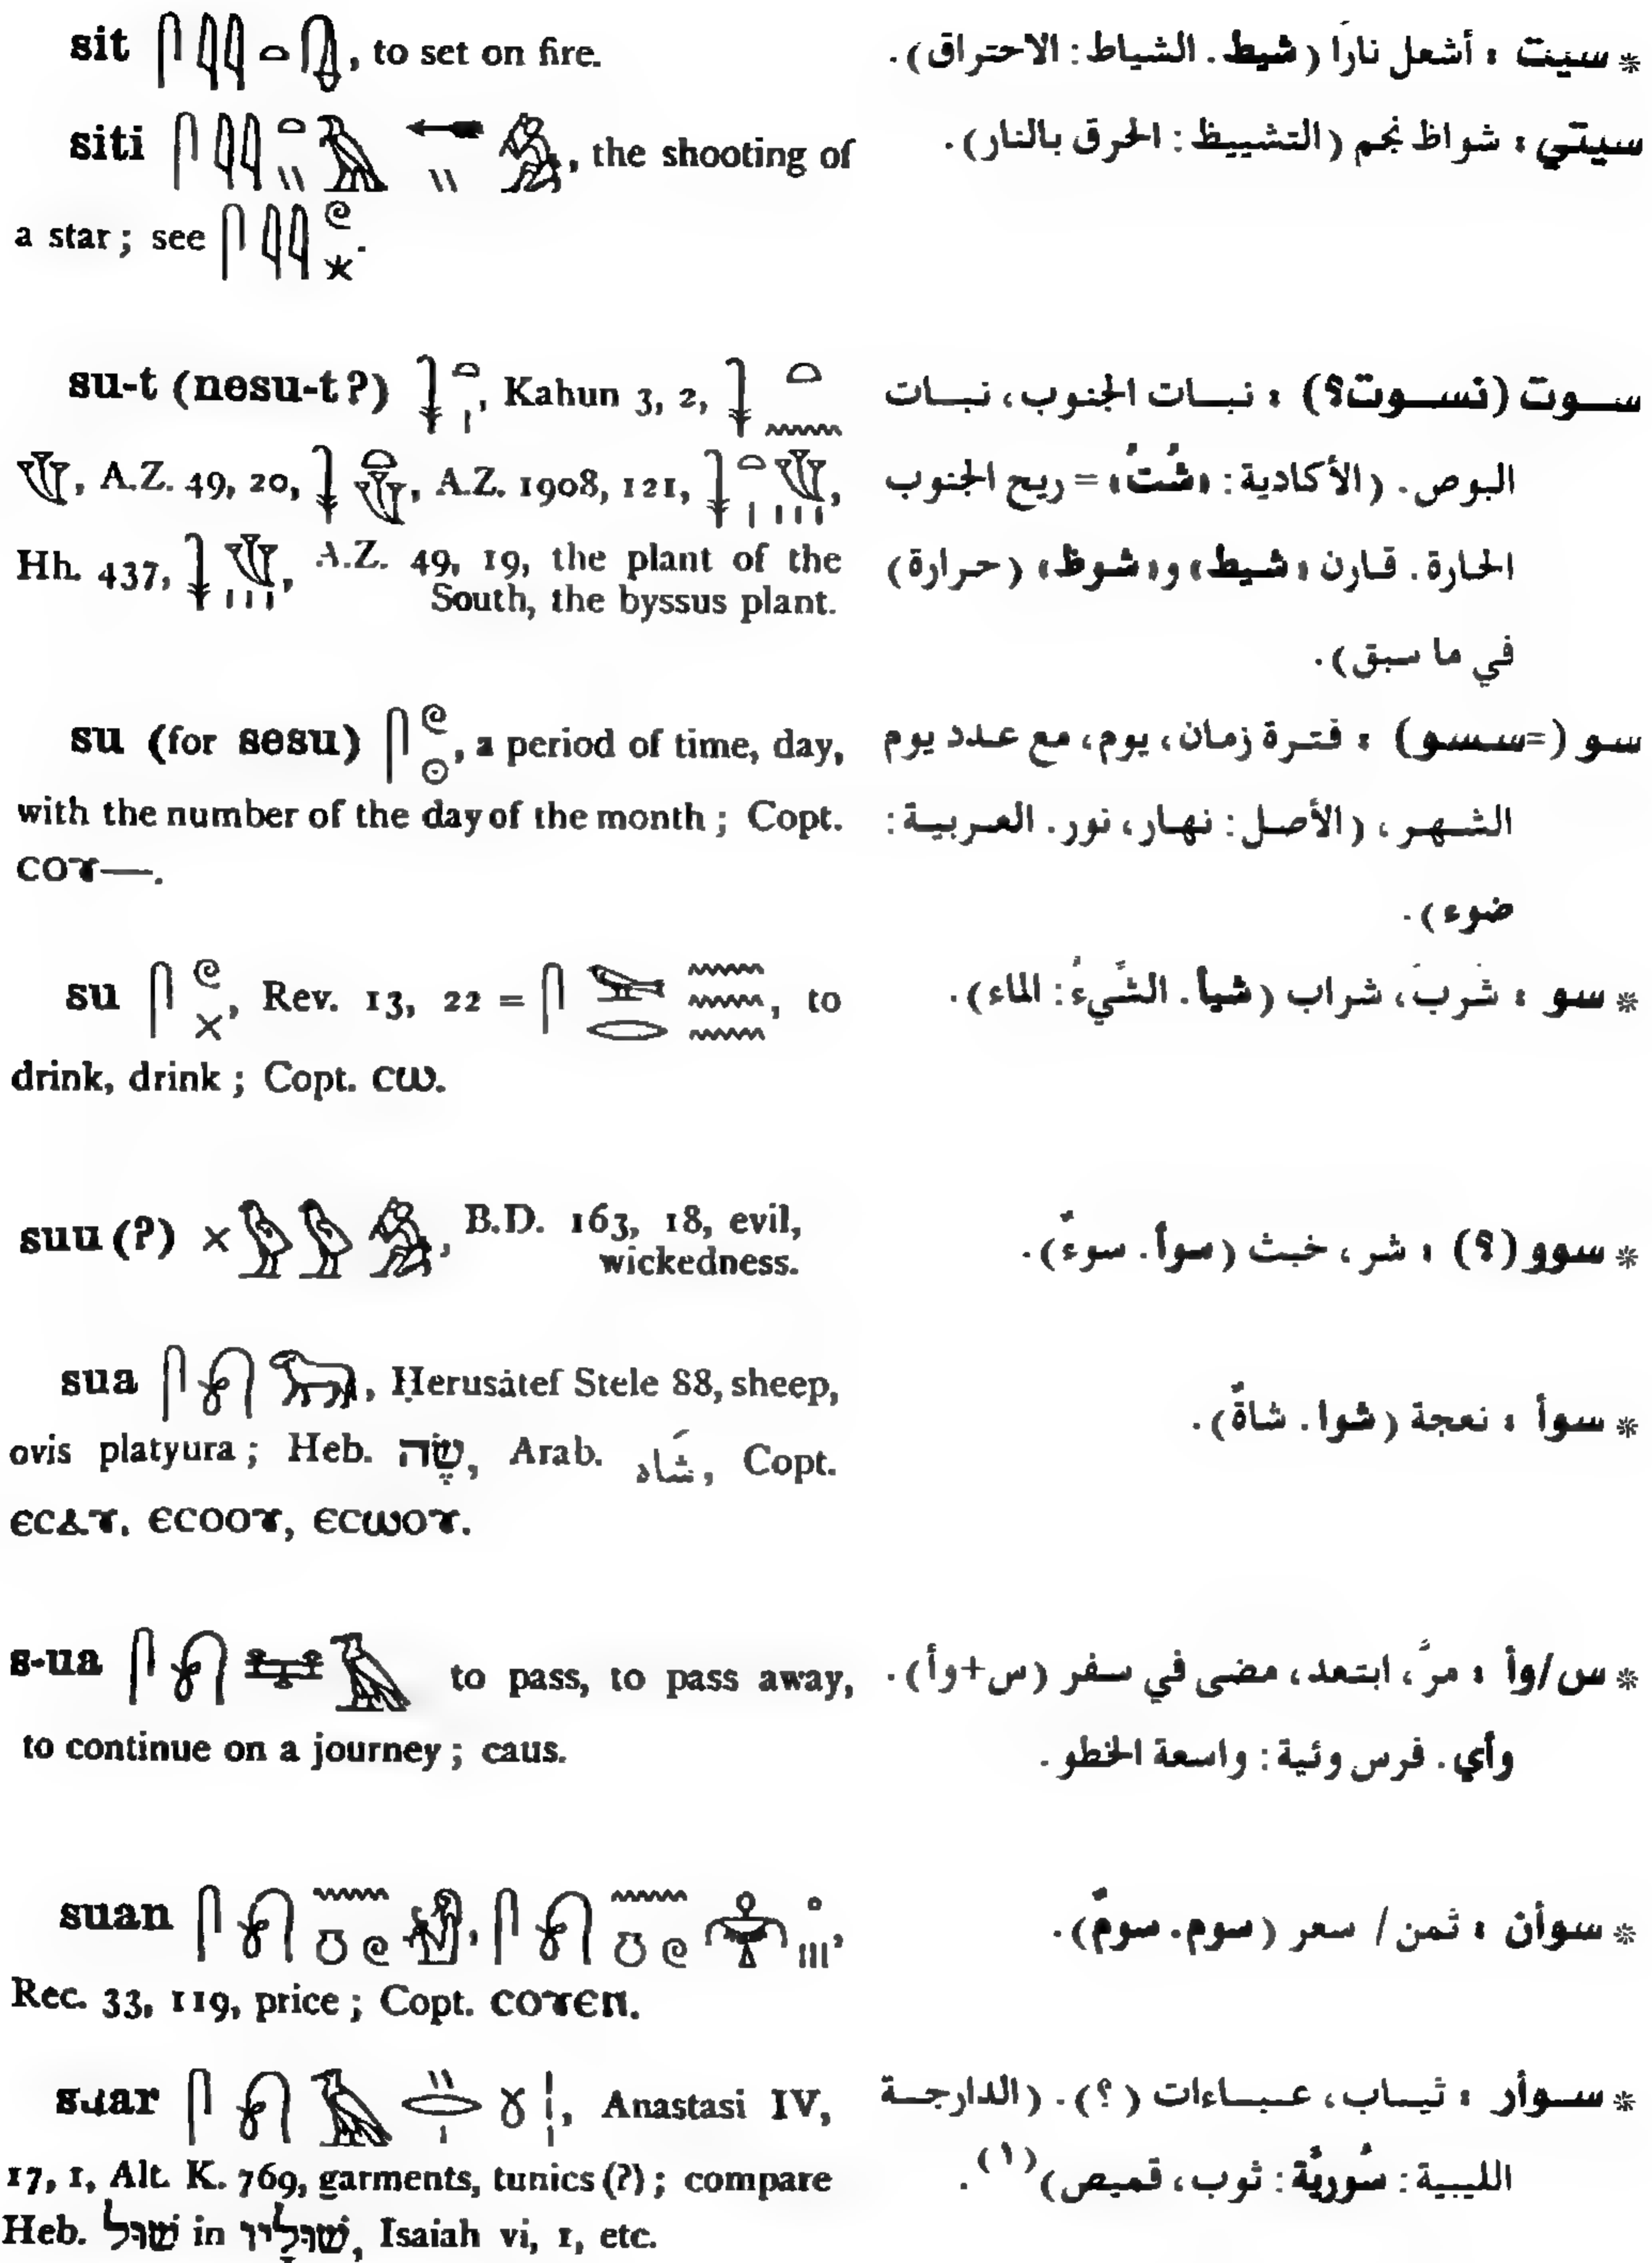 sit 𓋴𓇋𓇋𓏏𓊮, to set on fire.
siti 𓋴𓇋𓇋𓏏𓏭𓄿, the shooting of
a star; see 𓋴𓇋𓇋𓏲𓇼.
su-t (nesu-t?) 𓇓𓏏𓏤, Kahun 3, 2, 𓇓𓏏𓈖
𓇅, A.Z. 49, 20, 𓇓𓏏, A.Z. 1908, 121, 𓇓𓏏𓏤𓏥,
Hh. 437, 𓇓𓏥, A.Z. 49, 19, the plant of the
South, the byssus plant.
su (for sesu) 𓋴𓏲𓇳, a period of time, day,
with the number of the day of the month; Copt.
ⲥⲟⲩ—.
su 𓋴𓏲𓏴, Rev. 13, 22 = 𓋴𓅨𓂋𓈗, to
drink, drink; Copt. ⲥⲱ.
suu (?) 𓏴𓅱𓅱𓀁, B.D. 163, 18, evil,
wickedness.
sua 𓋴𓍯𓃞, Ḥerusȧtef Stele 88, sheep,
ovis platyura; Heb. שֶׂה, Arab. شَاه, Copt.
ⲉⲥⲁⲩ, ⲉⲥⲟⲟⲩ, ⲉⲥⲱⲟⲩ.
s-ua 𓋴𓍯𓄿 to pass, to pass away,
to continue on a journey; caus.
suan 𓋴𓍯𓈖𓏌𓏲, 𓋴𓍯𓈖𓏌𓏲𓏥,
Rec. 33, 119, price; Copt. ⲥⲟⲩⲉⲛ.
suar 𓋴𓍯𓄿𓂋𓏤𓏭𓍱, Anastasi IV,
17, 1, Alt. K. 769, garments, tunics (?); compare
Heb. שׁוּל in שׁוּלָיו, Isaiah vi, 1, etc.
* سيت : أشعل ناراً (شيط. الشياط: الاحتراق).
سيتي : شواظ نجم (التشييظ: الحرق بالنار).
سوت (نسوت؟) : نبات الجنوب، نبات
البوص. (الأكادية: «شُتُ» = ريح الجنوب
الحارة. قارن «شيط» و«شوظ» (حرارة)
في ما سبق).
سو (=سسو) : فترة زمان، يوم، مع عدد يوم
الشهر، (الأصل: نهار، نور. العربية:
ضوء).
* سو : شربَ، شراب (شيأ. الشَّيءُ: الماء).
* سوو (؟) : شر، خبث (سوأ. سوءٌ).
* سوأ : نعجة (شوا. شاةٌ).
* س/وأ : مرَّ، ابتعد، مضى في سفر (س+وأ).
وأي. فرس وئية: واسعة الخطو.
* سوأن : ثمن / سعر (سوم. سومٌ).
* سوأر : ثياب، عباءات (؟). (الدارجة
الليبية: سُوريَّة: ثوب، قميص)(١).